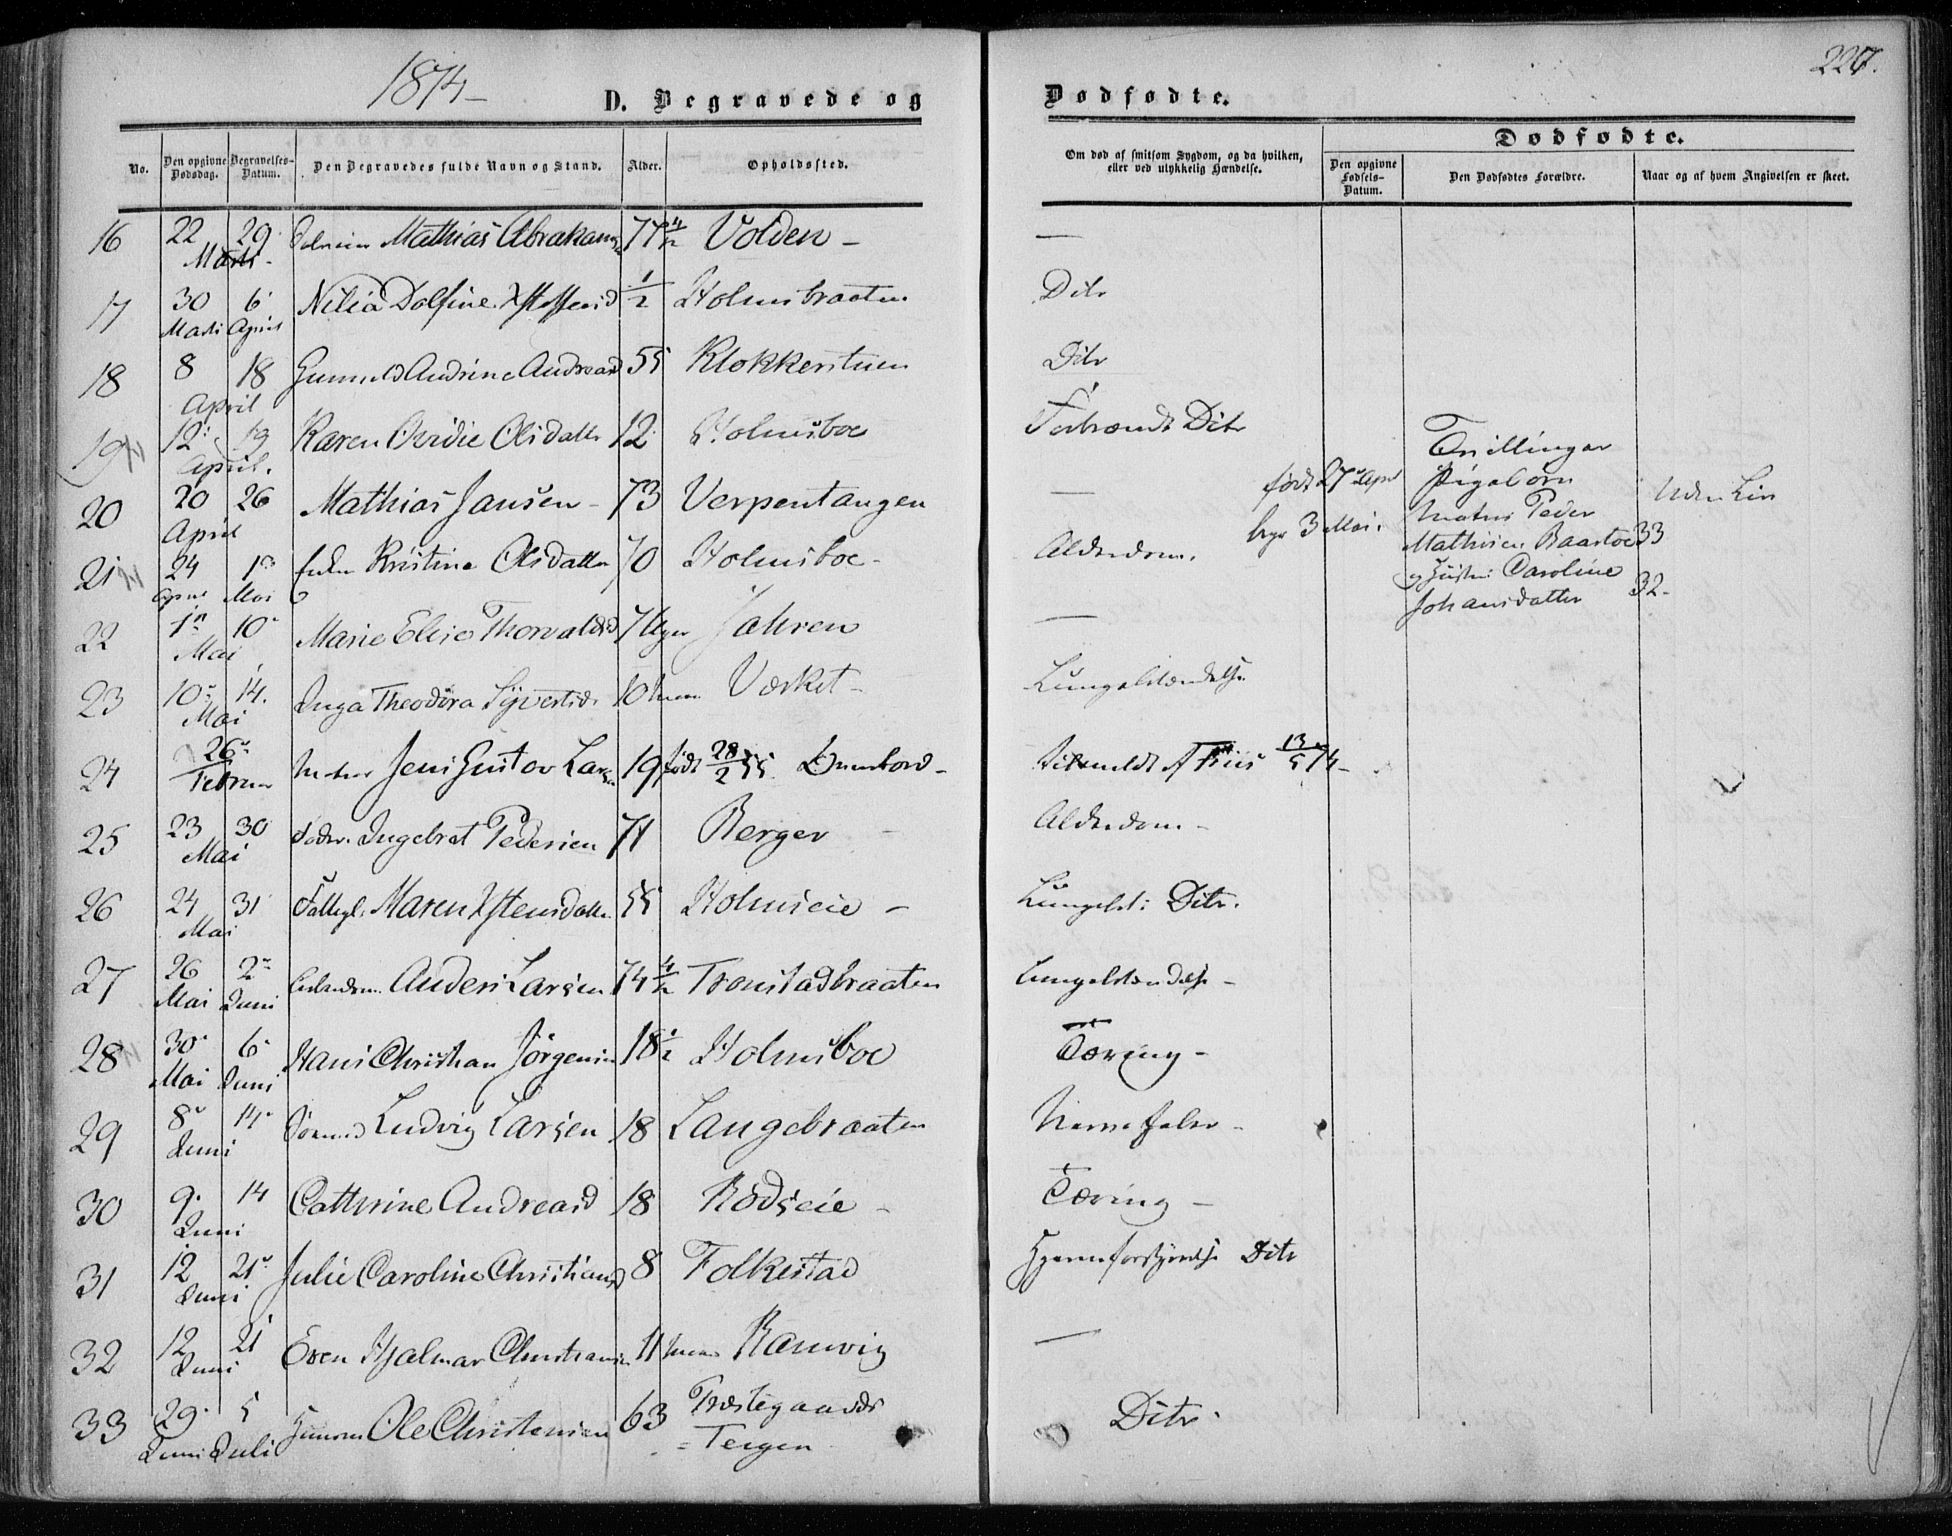 1874 –
227.
D. Begravede og
Dødfødte.
No.
Den opgivne Dødsdag.
Begravelses-Datum.
Den Begravedes fulde Navn og Stand.
Alder.
Opholdssted.
Om død af smitsom Sygdom, og da hvilken, eller ved ulykkelig Hændelse.
Dødfødte.
Den opgivne Fødsels-Datum.
Den Dødfødtes Forældre.
Naar og af hvem Angivelsen er skeet.
16 22 29 Marts Mathias Abrahams 77 Volden – —
17 30 Marts 6 April Nilia Dolfine 1/2 Holmsbraaten Dito
18 8 18 April Gunnild Andrine Andreasd 55 Klokkerstuen Dito
19 12 19 April. Karen Ovidie Olsdatter 12 Holmsboe Forbrændt Dito
20 20 26 April Mathias Jansen – 73 Verpentangen —
født 27 April
begr 3 Mai.
Tvillinger
Pigebørn
Peder
Mathisen Baastoe 33
og Hustru Caroline
Johansdatter 32 –
21 24 April 1 Mai Enke Kristine Olsdatter 70 Holmsboe – Alderdom.
22 1 10 Mai Marie Elise Thorvaldsd 7 Uger Jahren —
23 10 14. Mai Inga Theodora Syvertsd. 10 Værket – Lungebetændelse
24 26 Februar Jens Gustav Lars 19 født 28/2 55 13/5 74 –
25 23 30 Mai Ingebret Pedersen 71 Berger – Alderdom –
26 24 31 Mai Maren 55 Holmseie – Lungebet: Dito.
27 26 Mai 2 Juni Anders Larsen 74 Tronstadbraaten Lungebetændelse –
28 30 Mai 6 Juni Hans Christian Jörgensen 18 1/2 Holmsboe Tæring –
29 8 14 Juni Ludvig Larsen 18 Langebraaten Nervefeber –
30 9. 14 Juni Cathrine Andreasd 18 Rødseie – Tæring –
31 12 21 Juni Julie Caroline Christiansd 8 Folkestad Hjerneforstyrrelse Dito
32 12 21 Juni Even Hjalmar Christiansen 11 Ramvig —
33 29 Juni 5 Juli Ole Christensen 63 Præstegaards
= Teigen Dito.